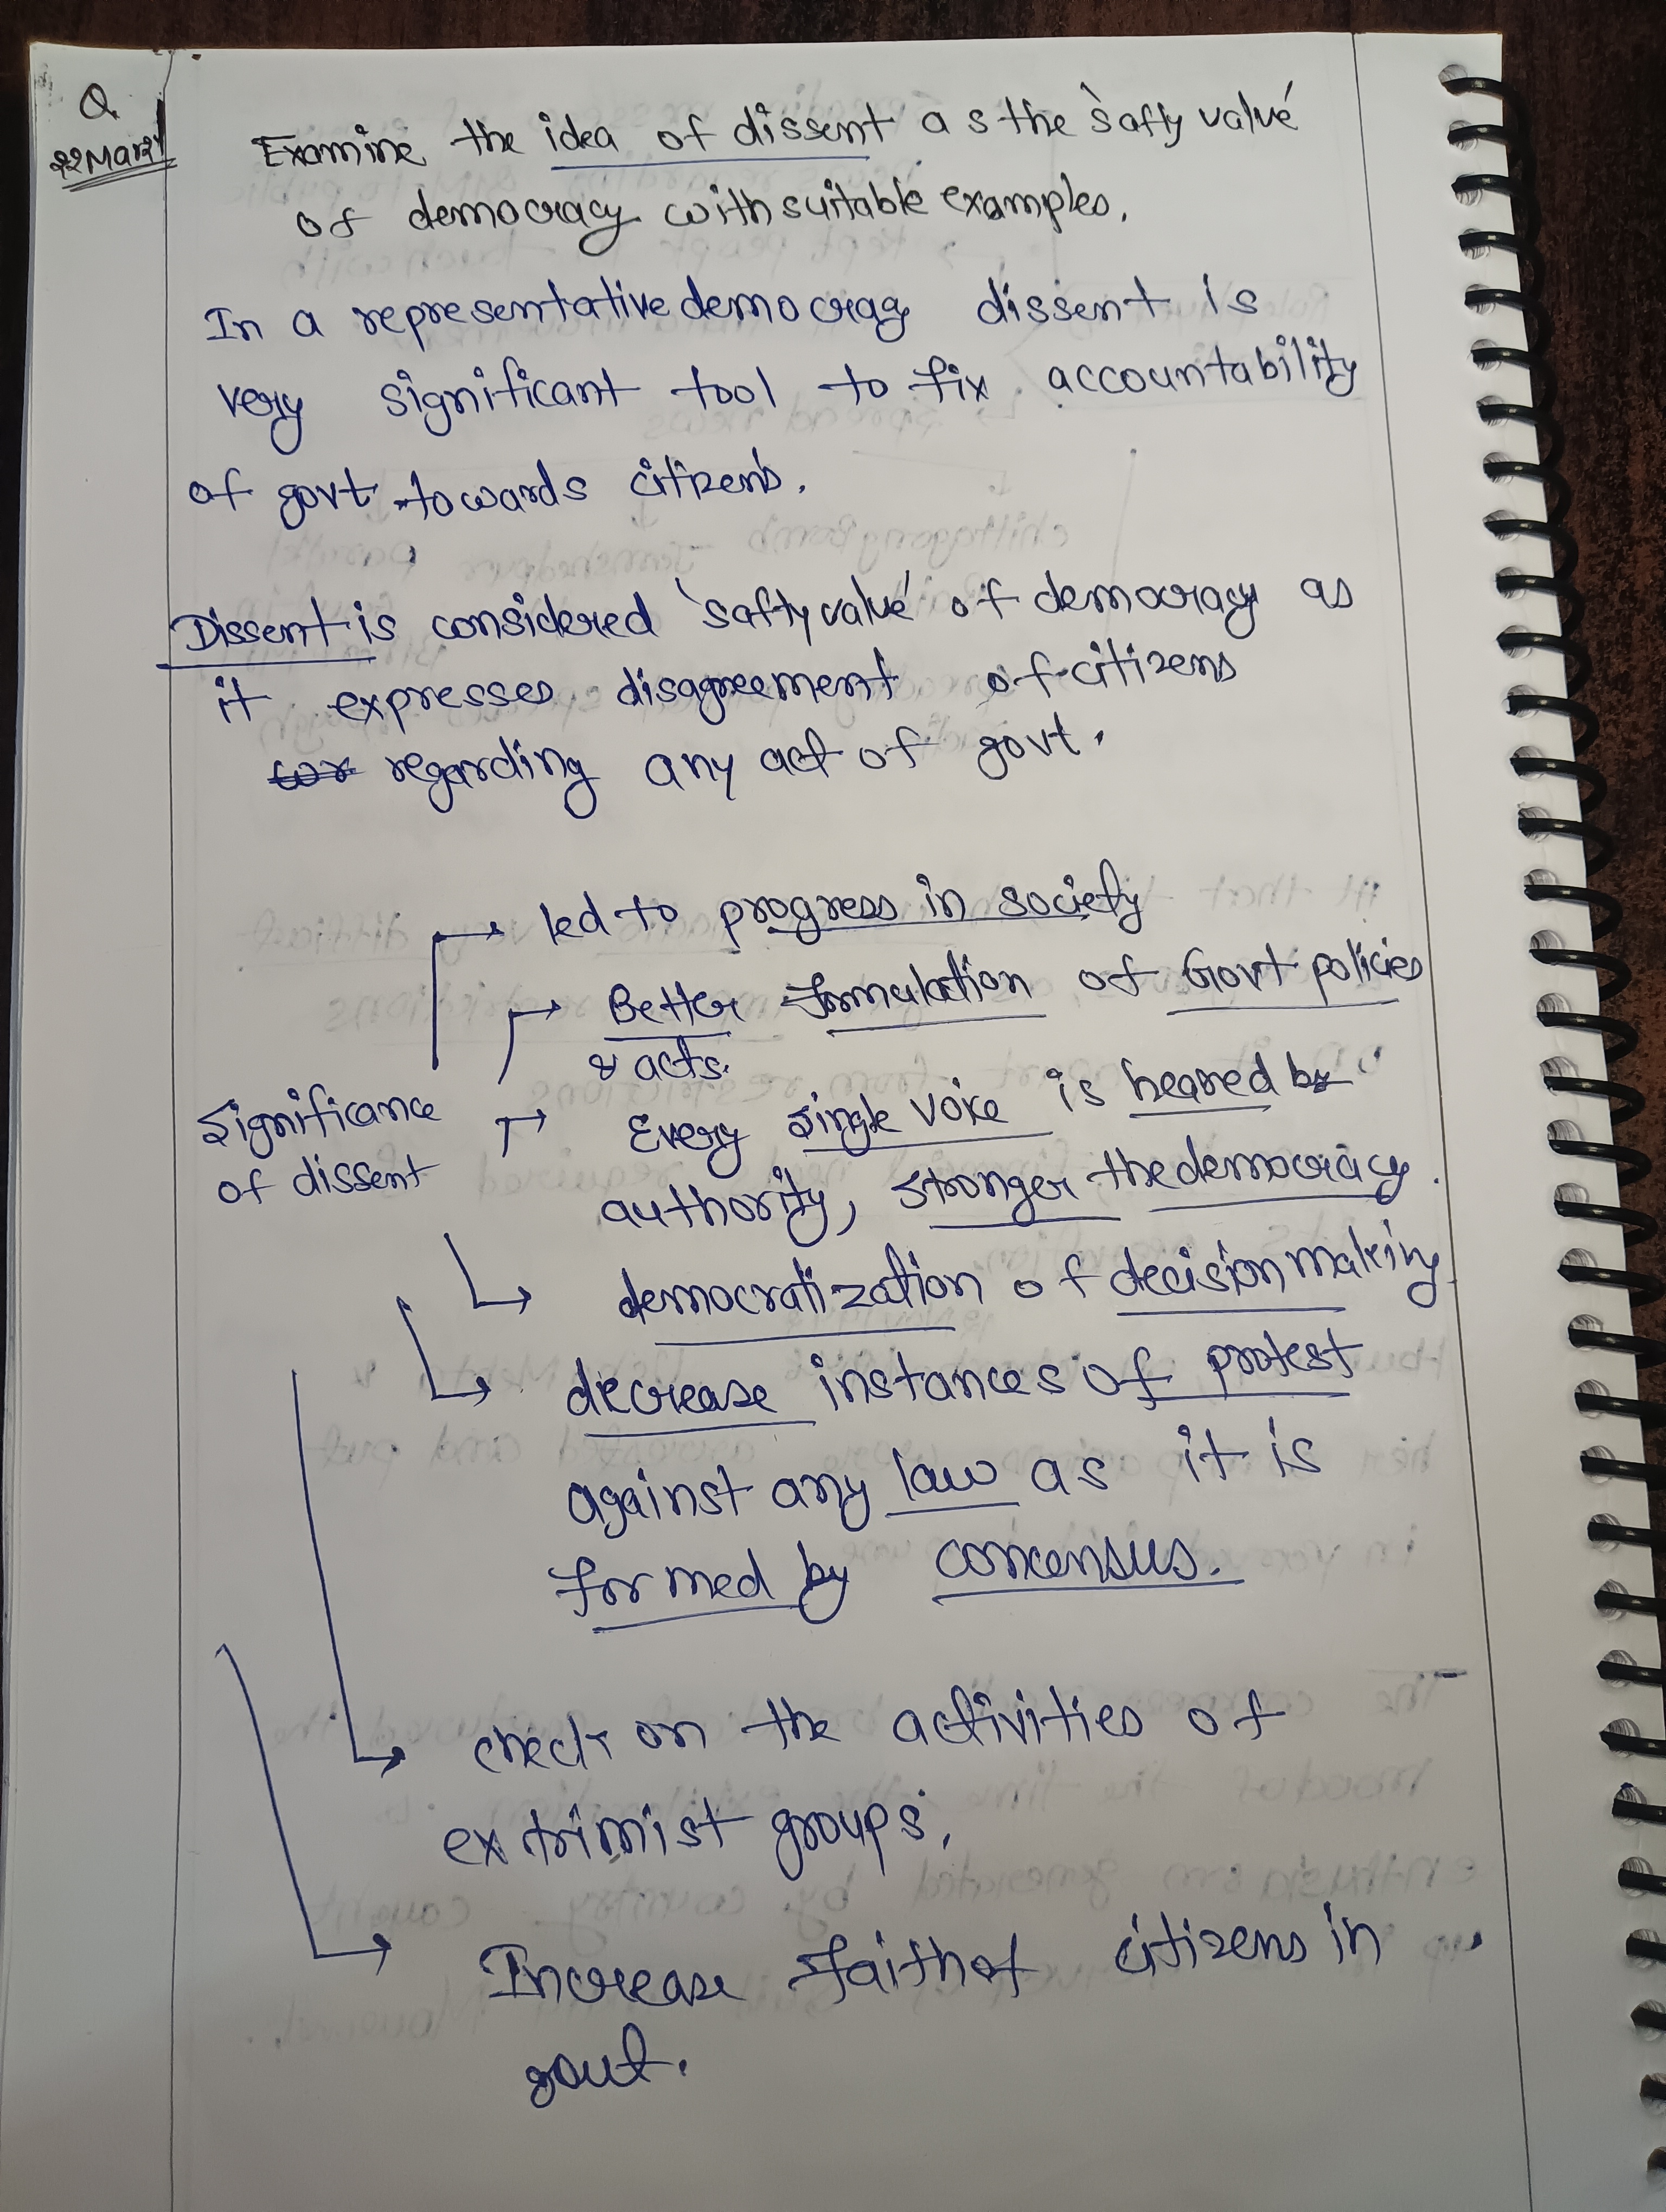 Q
22 Mar 21
Examine the idea of dissent as the 'safty valve'
of democracy with suitable examples.
In a representative democracy dissent is
very significant tool to fix accountability
of govt towards citizens.
Dissent is considered 'safty valve' of democracy as
it expresses disagreement of citizens
regarding any act of govt.
led to progress in society
Better formulation of Govt policies
& acts.
Significance
of dissent
Every single voice is heared by
authority, stronger the democracy.
democratization of decision making
decrease instances of protest
against any law as it is
formed by concensus.
check on the activities of
extrimist groups,
Increase faith of citizens in
govt.